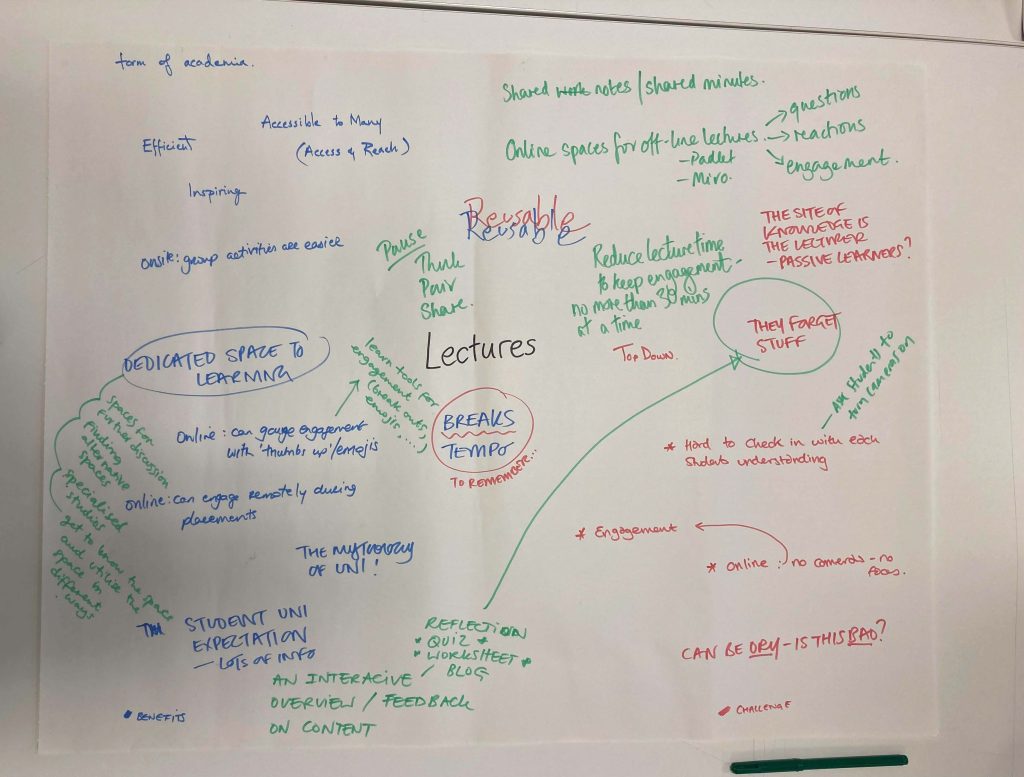 form of academia.
Efficient
Accessible to Many
(Access & Reach)
Inspiring
Onsite: group activities are easier
Shared notes / shared minutes.
Online spaces for off-line lectures.
- Padlet
- Miro.
questions
reactions
engagement.
Reusable
Reusable
Pause
Think
Pair
Share.
Reduce lecture time
to keep engagement -
no more than 30 mins
at a time
THE SITE OF
KNOWLEDGE IS
THE LECTURER
- PASSIVE LEARNERS?
Lectures
Top Down.
THEY FORGET
STUFF
Ask students to
turn cameras on
DEDICATED SPACE TO
LEARNING
learn tools for
engagement
(break outs,
emojis, ....)
BREAKS
TEMPO
TO REMEMBER...
Online: can gauge engagement
with 'thumbs up'/emojis
Online: can engage remotely during
placements
Spaces for
further discussion
Finding
alternative
spaces
Specialised
studios
get to know the space
and utilise the
space in
different
ways
* Hard to check in with each
Students understanding
* Engagement
* Online: no cameras - no
focus.
THE MYTHOLOGY
OF UNI!
STUDENT UNI
EXPECTATION
- LOTS OF INFO
REFLECTION
* QUIZ *
* WORKSHEET *
/ BLOG
AN INTERACIVE
OVERVIEW / FEEDBACK
ON CONTENT
CAN BE DRY - IS THIS BAD?
BENEFITS
CHALLENGE